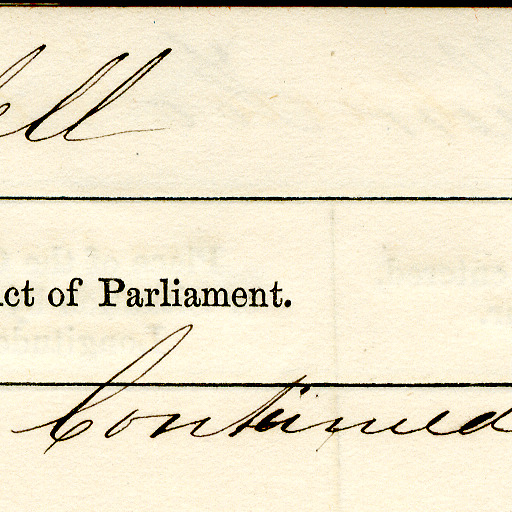 ell
ct of Parliament.
Continued